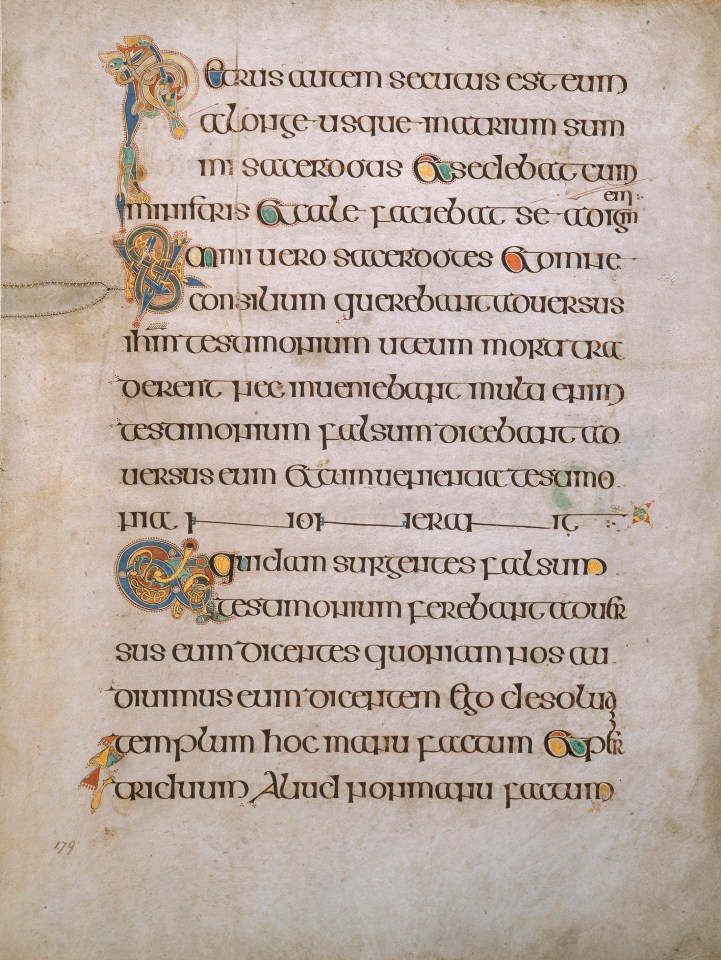 Petrus autem secutus est eum
alonge usque in atrium sum
mi sacerdotis Et sedebat cum
ministris Et cale faciebat se ad ignem
Summi uero sacerdotes Et omne
consilium querebant aduersus
ihm testimonium ut eum morti tra
derent nec inueniebant multi enim
testimonium falsum dicebant ad
uersus eum Et conuenientia testimo
nia non erant
Et quidam surgentes falsum
testimonium ferebant aduer
sus eum dicentes quoniam nos au
diuimus eum dicentem Ego desoluam
templum hoc manu factum Et per
triduum Aliud non manu factum
179